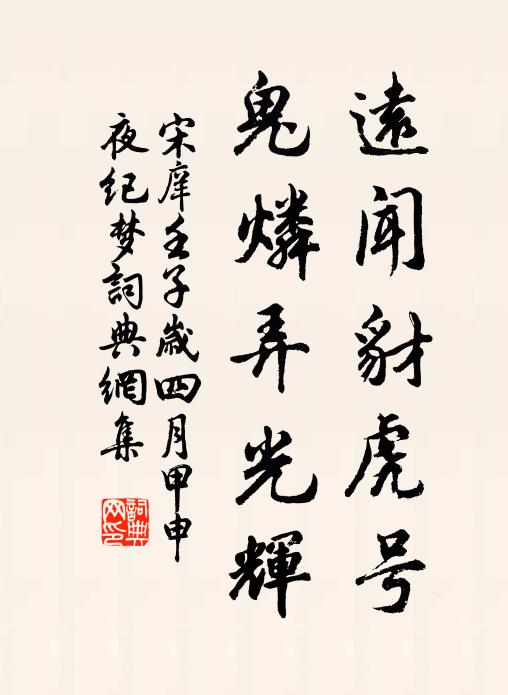 遠闻豺虎号
鬼燐弄光輝
宋庠壬子歲四月甲申
夜纪梦詞典網集
詞典
网印